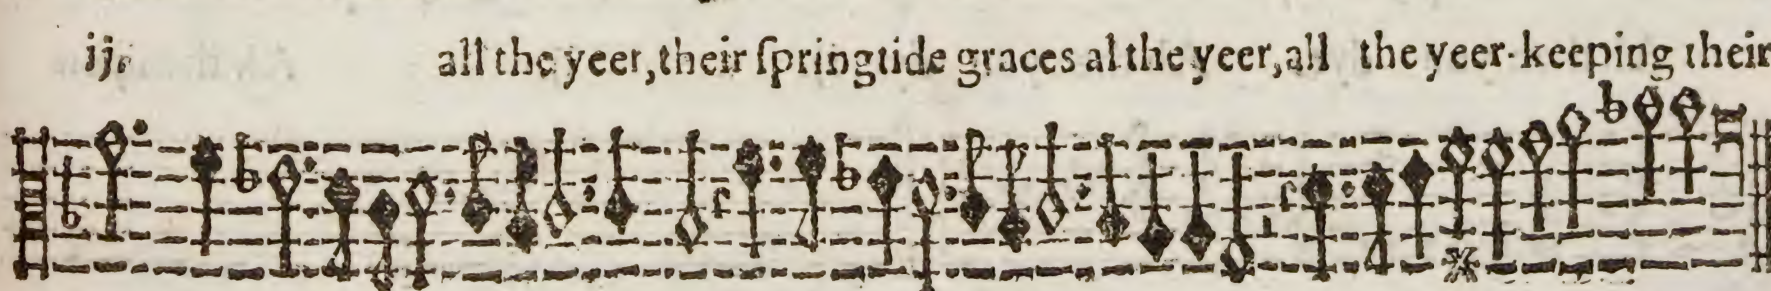 ij. all the yeer, their ſpringtide graces al the yeer, all the yeer keeping their